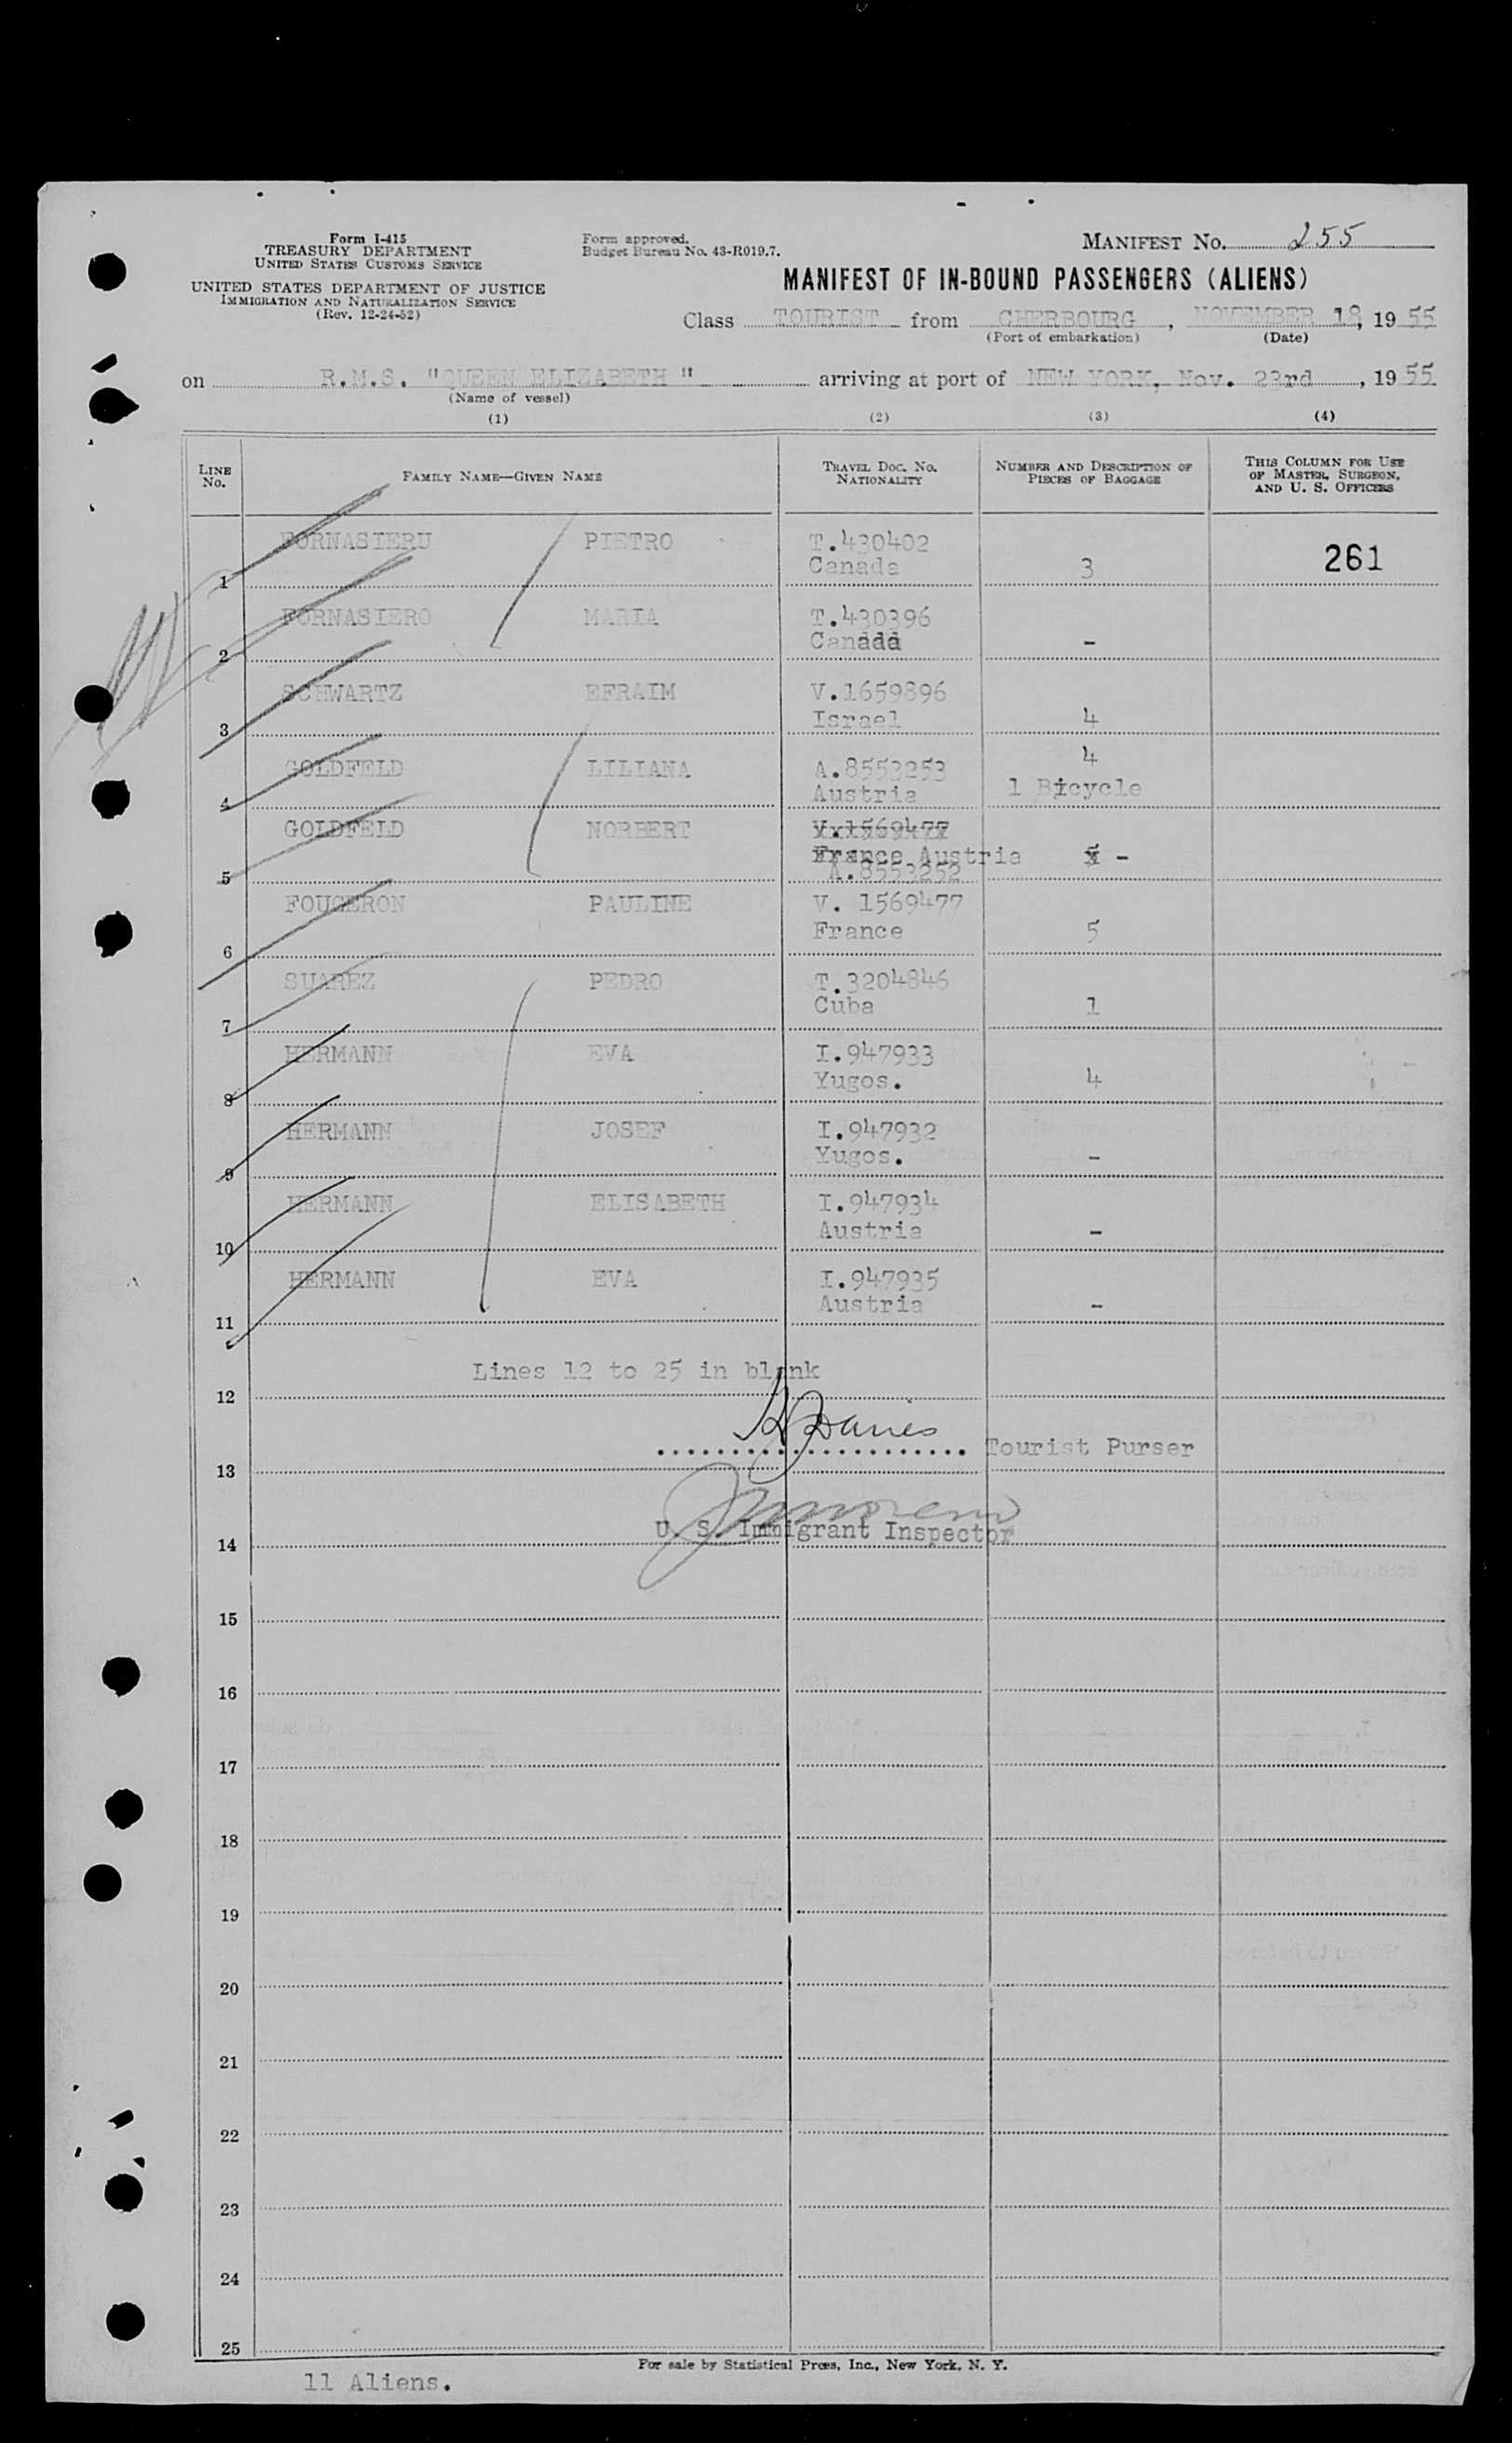 Form I-415
TREASURY DEPARTMENT
UNITED STATES CUSTOMS SERVICE
UNITED STATES DEPARTMENT OF JUSTICE
IMMIGRATION AND NATURALIZATION SERVICE
(Rev. 12-24-52)
Form approved.
Budget Bureau No. 43-R019.7.
MANIFEST No. 255
MANIFEST OF IN-BOUND PASSENGERS (ALIENS)
Class TOURIST from CHERBOURG, NOVEMBER 18, 1955
(Port of embarkation) (Date)
on R.M.S. "QUEEN ELIZABETH" arriving at port of NEW YORK, Nov. 23rd, 1955
(Name of vessel)
(1) (2) (3) (4)
LINE No. FAMILY NAME—GIVEN NAME TRAVEL DOC. No. NATIONALITY NUMBER AND DESCRIPTION OF PIECES OF BAGGAGE THIS COLUMN FOR USE OF MASTER, SURGEON, AND U. S. OFFICERS
FORNASIERU PIETRO T.430402
1 Canada 3 261
FORNASIERO MARIA T.430396
2 Canada -
SCHWARTZ EFRAIM V.1659896
3 Israel 4
GOLDFELD LILIANA A.8553253 4
4 Austria 1 Bicycle
GOLDFELD NORBERT V.1569477
France Austria 5 -
5 A.8553252
FOUGERON PAULINE V. 1569477
6 France 5
SUAREZ PEDRO T.3204846
7 Cuba 1
HERMANN EVA I.947933
8 Yugos. 4
HERMANN JOSEF I.947932
9 Yugos. -
HERMANN ELISABETH I.947934
10 Austria -
HERMANN EVA I.947935
11 Austria -
Lines 12 to 25 in blank
12
Davies
Tourist Purser
13
U. S. Immigrant Inspector
14
15
16
17
18
19
20
21
22
23
24
25
For sale by Statistical Press, Inc., New York, N. Y.
11 Aliens.